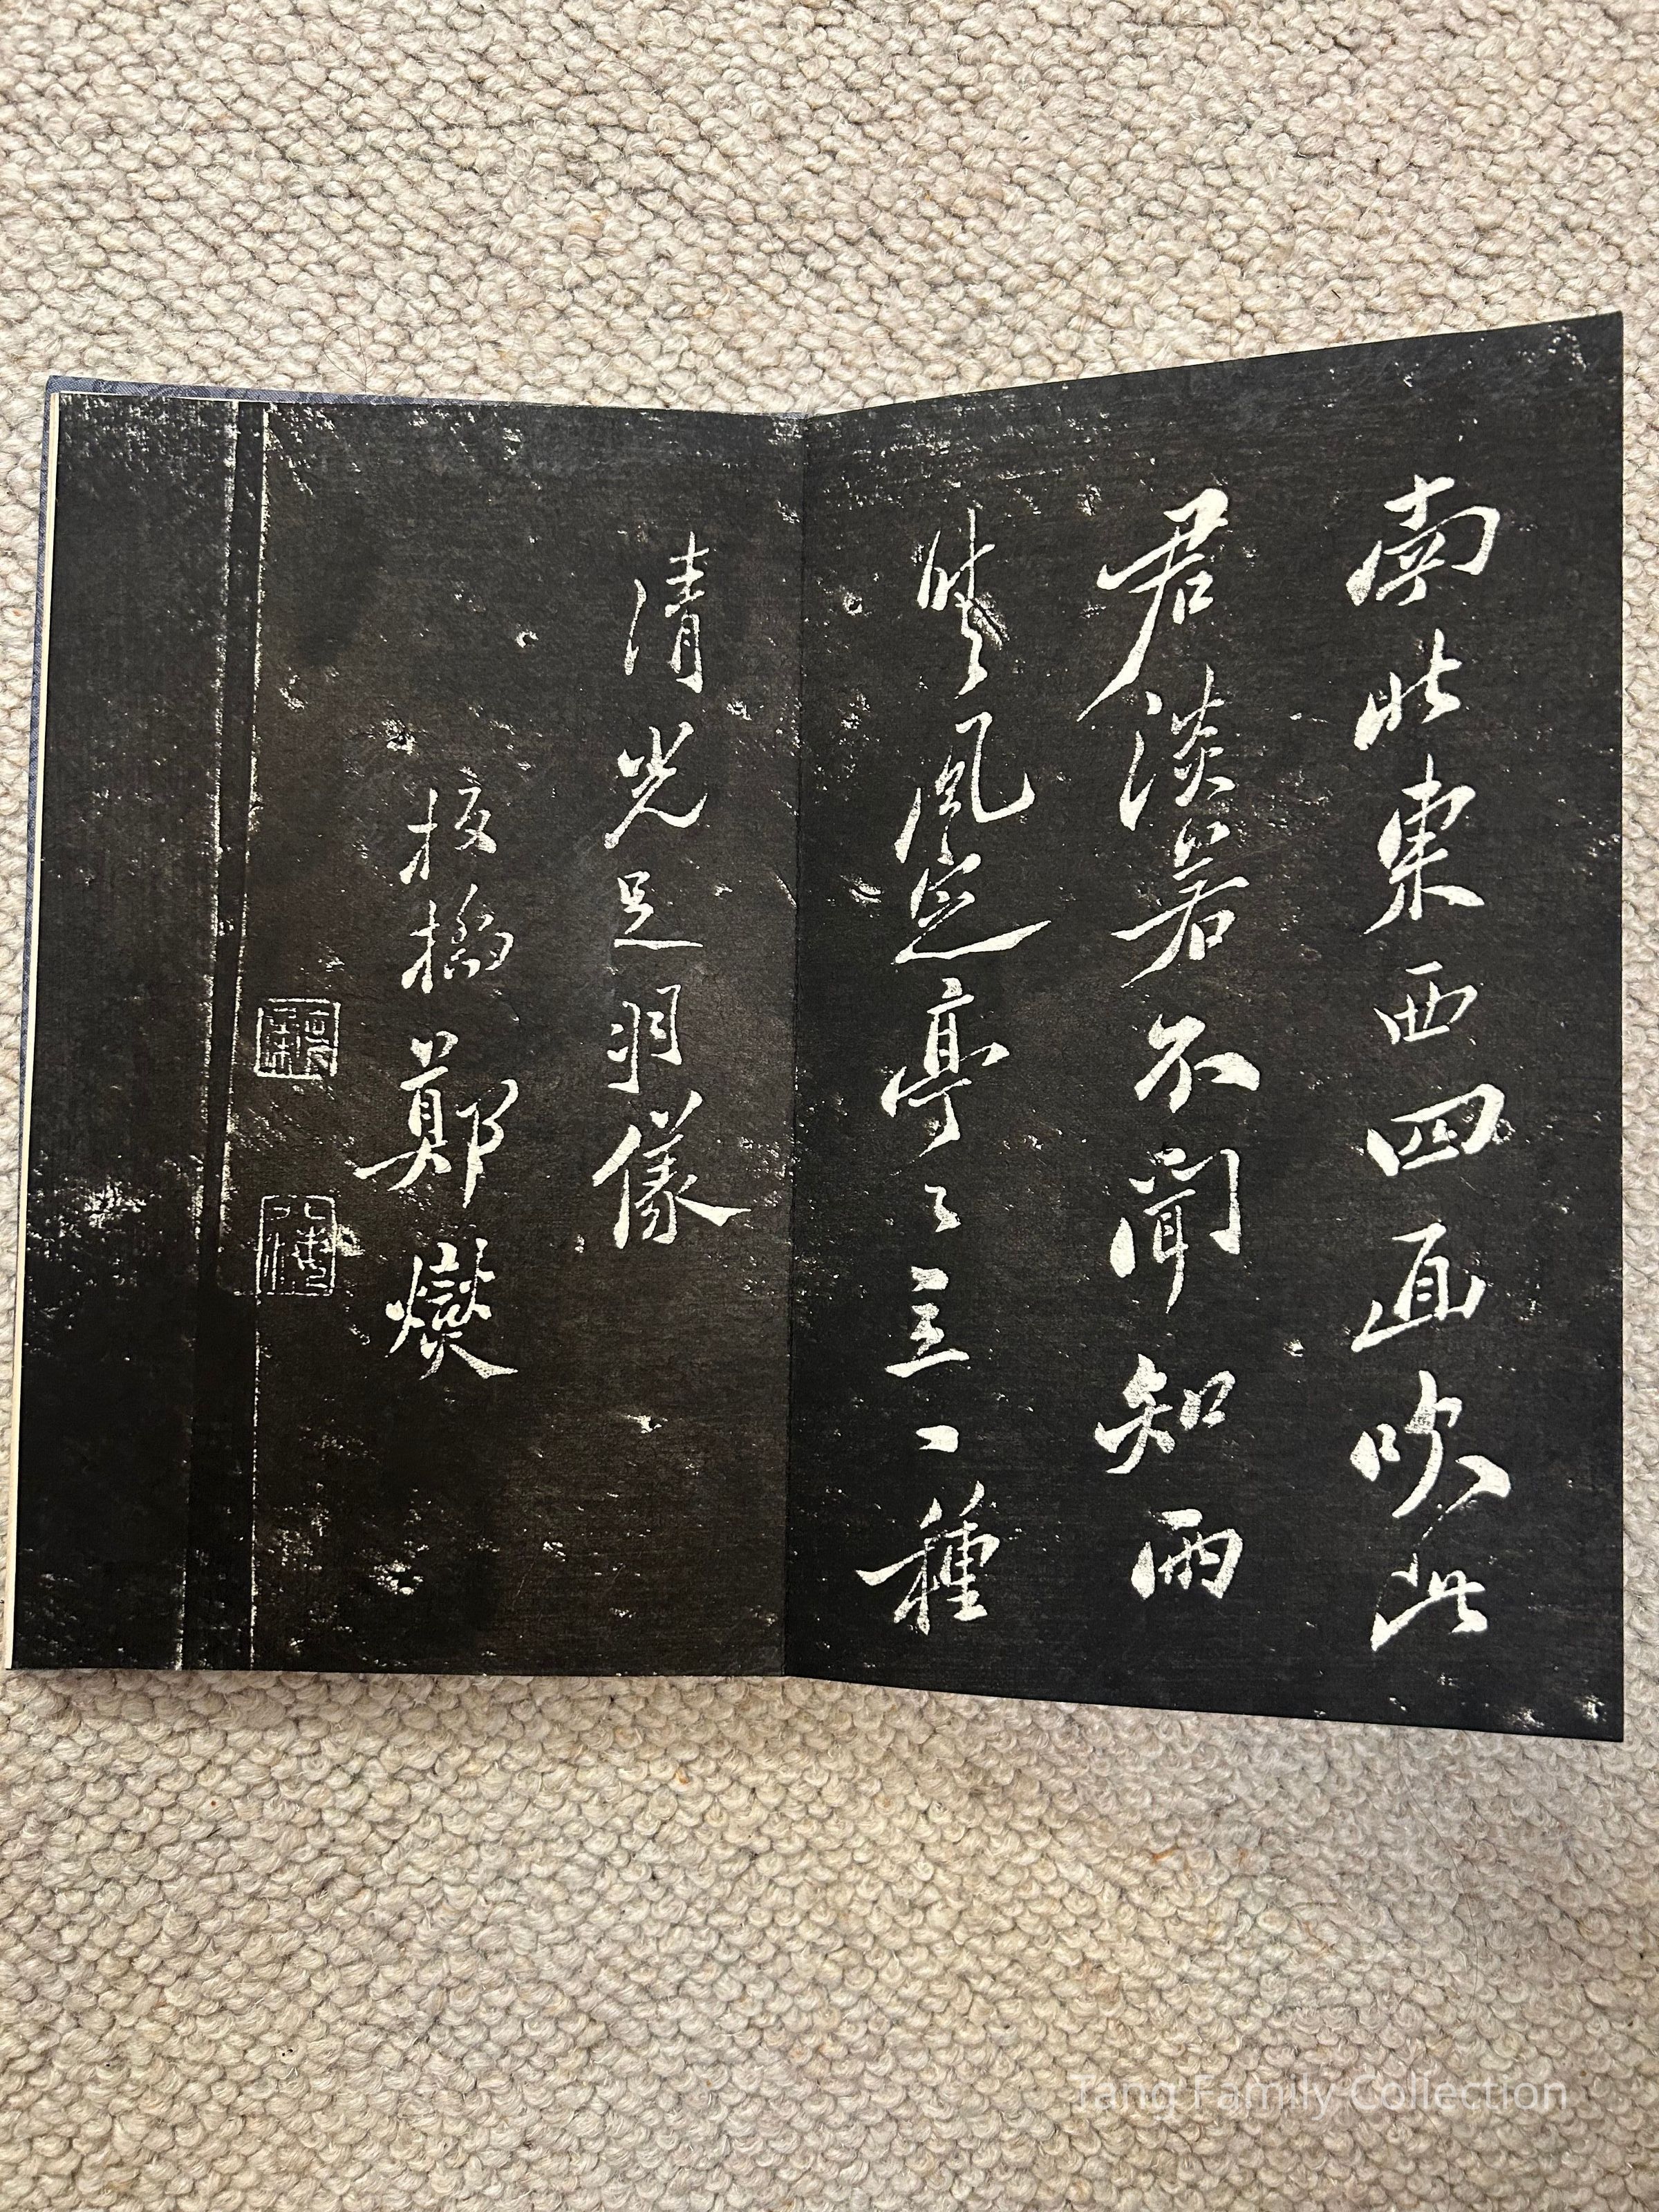 南北東西四面吹此
君淡若不聞知雨
晴風定亭々立一種
清光足羽儀
板橋鄭燮
Tang Family Collection